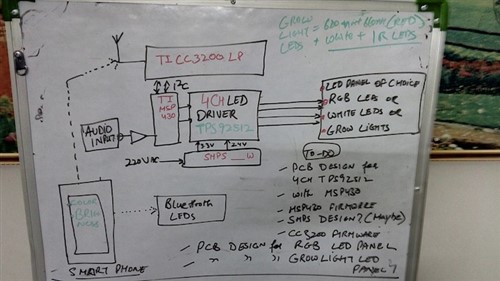 GROW
LIGHT = 620nm+470nm (RED)
LEDS + WHITE + IR LEDS
TI CC3200 LP
I2C
TI
MSP
430
4CH LED
DRIVER
TPS92512
LED PANEL OF CHOICE
RGB LEDS OR
WHITE LEDS OR
GROW LIGHTS
AUDIO
INPUT
3.3V
24V
220V AC
SMPS __ W
TO-DO
- PCB DESIGN for
4CH TPS92512
- with MSP430
- MSP430 FIRMWARE
- SMPS DESIGN? (Maybe)
- CC3200 FIRMWARE
- PCB DESIGN for RGB LED PANEL
- " " " GROWLIGHT LED
PANEL?
COLOR
BRIGHT
NESS
Bluetooth
LEDs
SMART PHONE